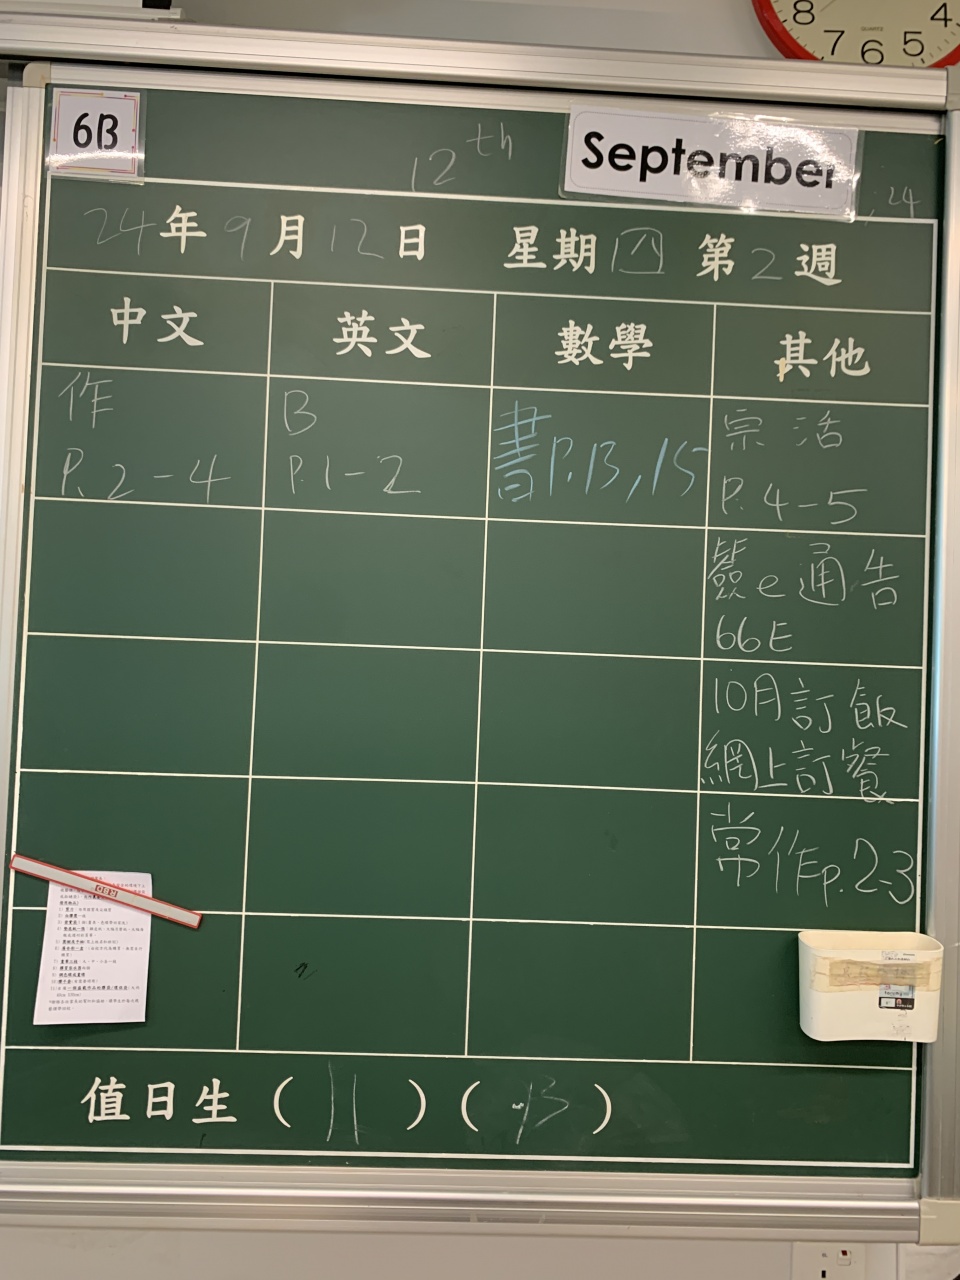 8 7 6 5 4
QUARTZ
6B
12th September
, 24
24年9月12日 星期四 第2週
中文 英文 數學 其他
作
P.2-4
B
P.1-2
書P.13,15
宗活
P.4-5
簽e通告
66E
10月訂飯
網上訂餐
常作p.2-3
值日生 ( 11 ) ( 13 )